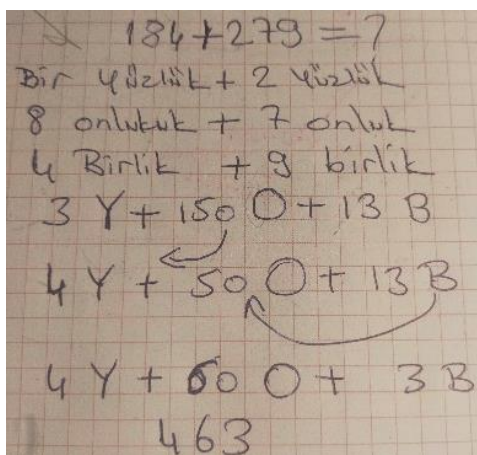 184+279=?
Bir yüzlük + 2 yüzlük
8 onlukuk + 7 onluk
4 Birlik + 9 birlik
3 Y + 150 O + 13 B
4 Y + 50 O + 13 B
4 Y + 60 O + 3 B
463